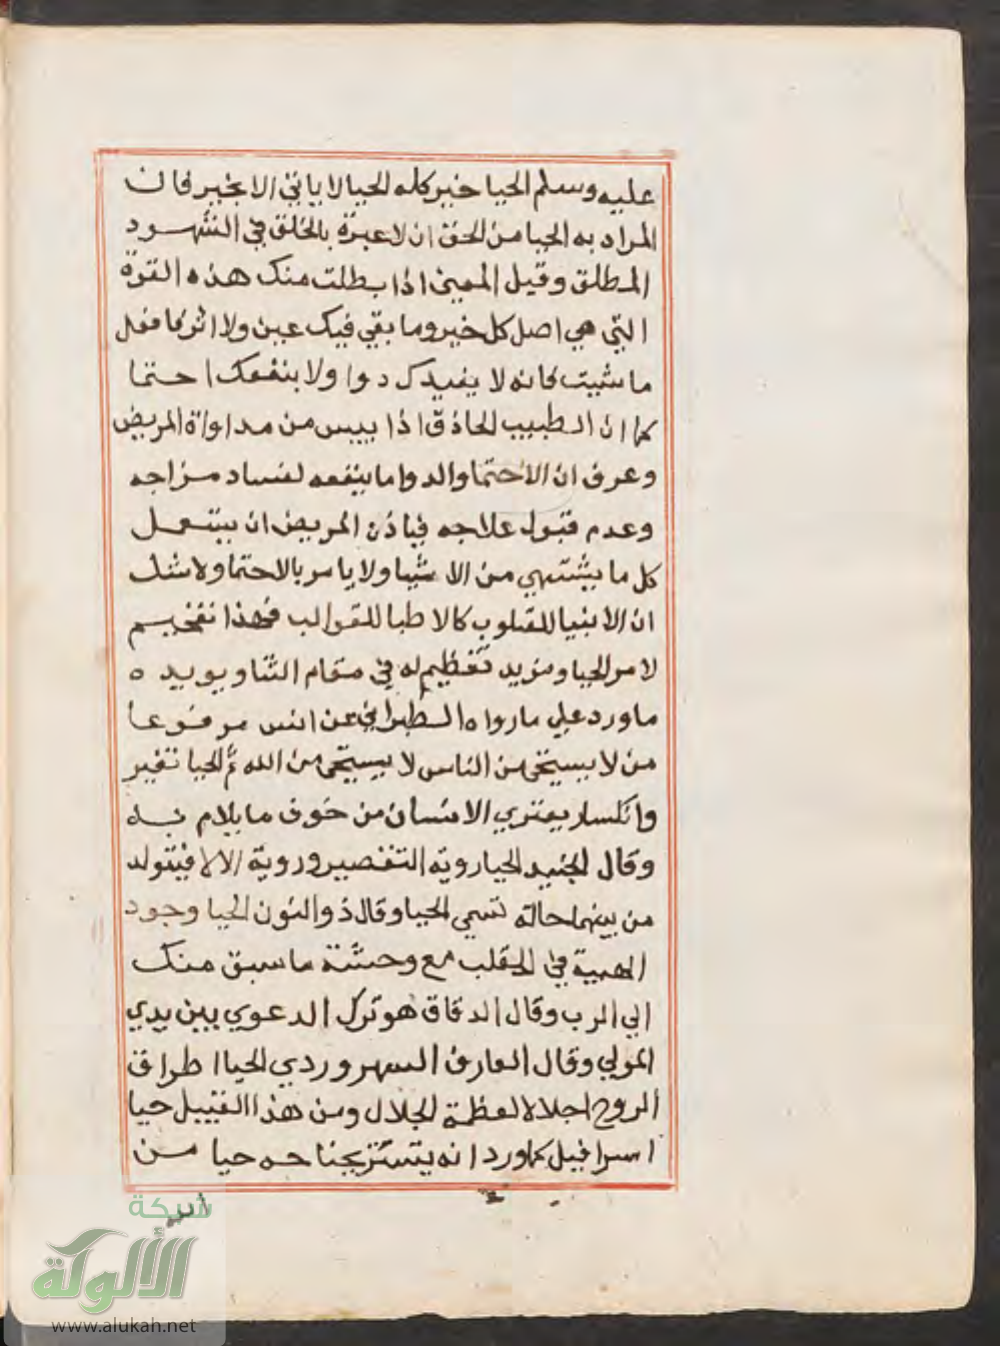 عليه وسلم الحيا خير كله الحيا لا ياتي الا بخير فان
المراد به الحيا من الحق ان لا عبرة بالخلق في الشهود
المطلق وقيل المعنى اذا بطلت منك هذه القوة
التي هي اصل كل خير وما بقي فيك عين ولا اثر فافعل
ما شيت فانه لا يفيدك دوا ولا ينفعك احتما
كما ان الطبيب الحاذق اذا ييس من مداواة المريض
وعرف ان الاحتما والدوا ما ينفعه لفساد مزاجه
وعدم قبول علاجه فياذن المريض ان يستعمل
كل ما يشتهي من الاشيا ولا يامر بالاحتما ولا شك
ان الانبيا للقلوب كالاطبا للقوالب فهذا تفخيم
لامر الحيا ومزيد تعظيم له في مقام الثنا ويويده
ما ورد علي ما رواه الطبراني عن انس مرفوعا
من لا يستحي من الناس لا يستحي من الله ثم الحيا تغير
وانكسار يعتري الانسان من خوف ما يلام به
وقال الجنيد الحيا روية التقصير وروية الالا فيتولد
من بينهما حالة تسمي الحيا وقال ذو النون الحيا وجود
الهيبة في القلب مع وحشة ما سبق منك
الي الرب وقال الدقاق هو ترك الدعوي بين يدي
المولي وقال العارف السهروردي الحيا اطراق
الروح اجلالا لعظمة الجلال ومن هذا القبيل حيا
اسرافيل كما ورد انه يتستر بجناحه حيا من
شبكة
الألوكة
www.alukah.net